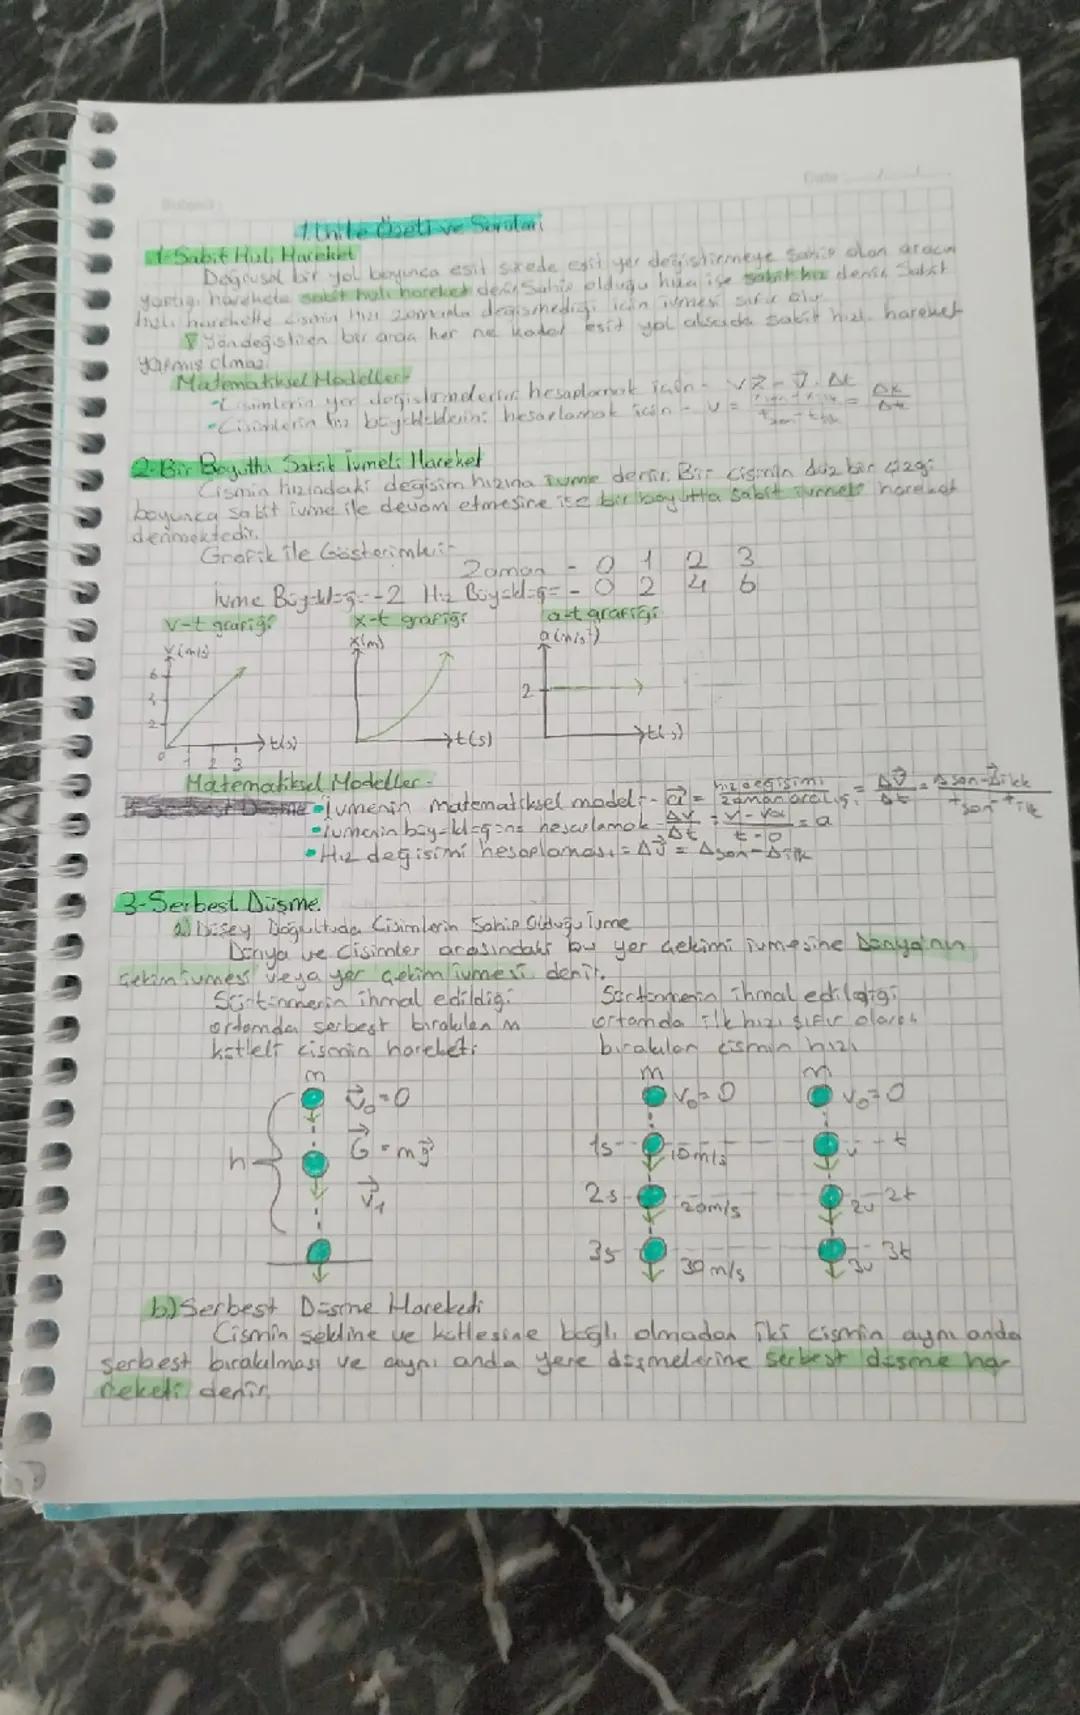 Date
1. Ünite Özeti ve Soruları
1-Sabit Hızlı Hareket
Doğrusal bir yol boyunca eşit sürede eşit yer değiştirmeye sahip olan aracın
yaptığı harekete sabit hızlı hareket denir. Sahip olduğu hıza ise sabit hız denir. Sabit
hızlı harekette cismin hızı zamanla değişmediği için ivmesi sıfır olur.
Yön değiştiren bir araç her ne kadar eşit yol alsa da sabit hızlı hareket
yapmış olmaz.
Matematiksel Modeller-
Cisimlerin yer değiştirmelerini hesaplamak için -
Cisimlerin hız büyüklüklerini hesaplamak için - v =
2-Bir Boyutta Sabit İvmeli Hareket
Cismin hızındaki değişim hızına ivme denir. Bir cismin düz bir çizgi
boyunca sabit ivme ile devam etmesine ise bir boyutta sabit ivmeli hareket
denmektedir.
Grafik ile Gösterimleri-
Zaman - 0 1 2 3
İvme Büyüklüğü--2 Hız Büyüklüğü= - 0 2 4 6
v-t grafiği x-t grafiği a-t grafiği
v(m/s) x(m) a(m/s²)
6
4
2 2
0 1 2 3 t(s) t(s) t(s)
Matematiksel Modeller-
İvmenin matematiksel modeli- a⃗ = hız değişimi / zaman aralığı = Δv⃗ / Δt = Δson-Δilk / tson-tilk
İvmenin büyüklüğünü hesaplamak Δv / Δt = v-v₀ / t-0 = a
Hız değişimi hesaplaması = Δv⃗ = Δson-Δilk
3-Serbest Düşme
a) Düşey Doğrultuda Cisimlerin Sahip Olduğu İvme
Dünya ve cisimler arasındaki bu yer çekimi ivmesine Dünya'nın
çekim ivmesi veya yer çekim ivmesi denir.
Sürtünmenin ihmal edildiği Sürtünmenin ihmal edildiği
ortamda serbest bırakılan m ortamda ilk hızı sıfır olarak
kütleli cismin hareketi bırakılan cismin hızı
m m m
v⃗₀=0 v₀=0 v₀=0
G⃗=mg⃗ 1s 10m/s v t
h v⃗₁ 2s 20m/s 2v 2t
3s 30 m/s 3v 3t
b) Serbest Düşme Hareketi
Cismin şekline ve kütlesine bağlı olmadan iki cismin aynı anda
serbest bırakılması ve aynı anda yere düşmelerine serbest düşme ha-
reketi denir.